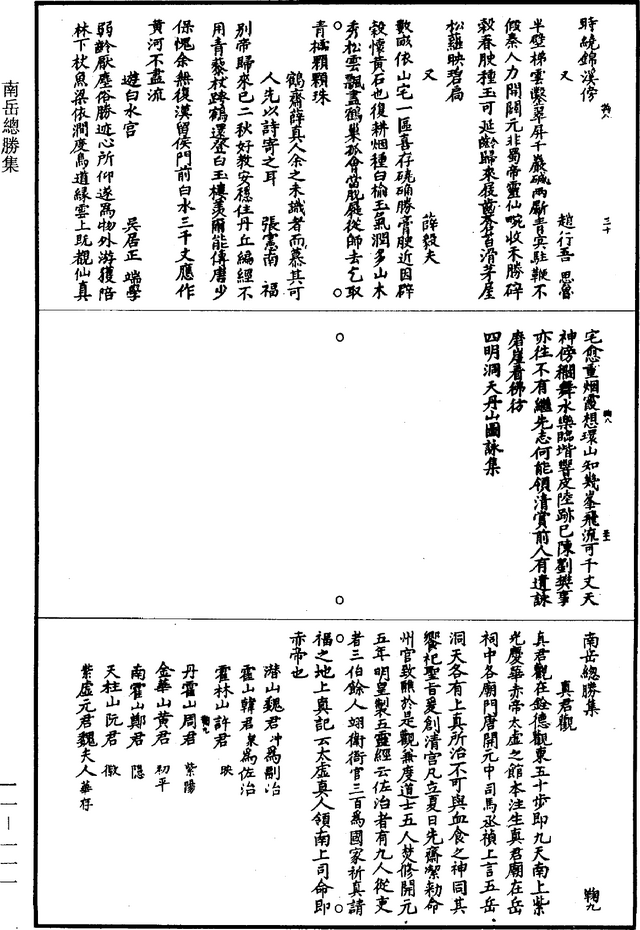 南岳總勝集
時繞錦溪傍
又
趙行吾 思魯
半壁梯雲鑿翠屏千巖碱兩斷青冥駐鞭不
假秦人力開闢元非蜀帝靈仙畹收禾勝碎
穀春陂種玉可延齡歸來屐齒蒼苔滑芽屋
松蘿映碧扃
又
薛毅夫
數畝依山宅一區喜存磽确勝膏腴近因辟
穀懷黄石也復耕烟種白榆玉氣潤多山木
秀松雲飄盡鶴巢孤會當脫屣從師去乞取
青精顆顆珠
鶴齋薛真人余之未識者而慕其可
人先以詩寄之耳 張憲南 福
別帝歸來已二秋好教安穩住丹丘編經不
用青藜杖跨鶴還登白玉樓羨爾能傳磨少
保愧余無復漢留侯門前白水三千丈應作
黄河不盡流
遊白水宫
吳居正 端學
弱齡厭塵俗勝迹心所仰遂爲物外游獲陪
林下杖魚梁依澗度鳥道緣雲上旣覩仙真
宅愈重烟霞想環山知幾峯飛流可千丈天
神傍櫩舞水樂臨堦響皮陸跡已陳劉樊事
亦往不有繼先志何能領清賞前人有遺詠
磨崖看彿彷
四明洞天丹山圖詠集
南岳總勝集
鞠九
真君觀
真君觀在銓德觀東五十步即九天南上紫
光慶華赤帝太虛之館本注生真君廟在岳
祠中各廟門唐開元中司馬丞禎上言五岳
洞天各有上真所治不可與血食之神同其
饗祀聖旨爰創清宫凡立夏日先齋潔勑命
州官致醮於是觀兼度道士五人焚修開元
五年明皇製五靈經云佐治者有九人從吏
者三伯餘人翊衛衙官三百爲國家祈真請
福之地上真記云太虛真人領南上司命即
赤帝也
潜山魏君 冲爲副治
霍山韓君 衆爲佐治
霍林山許君 映
丹霍山周君 紫陽
金華山黄君 初平
南霍山鄭君 隱
天柱山阮君 徽
紫虛元君魏夫人 華存
一一—一一一